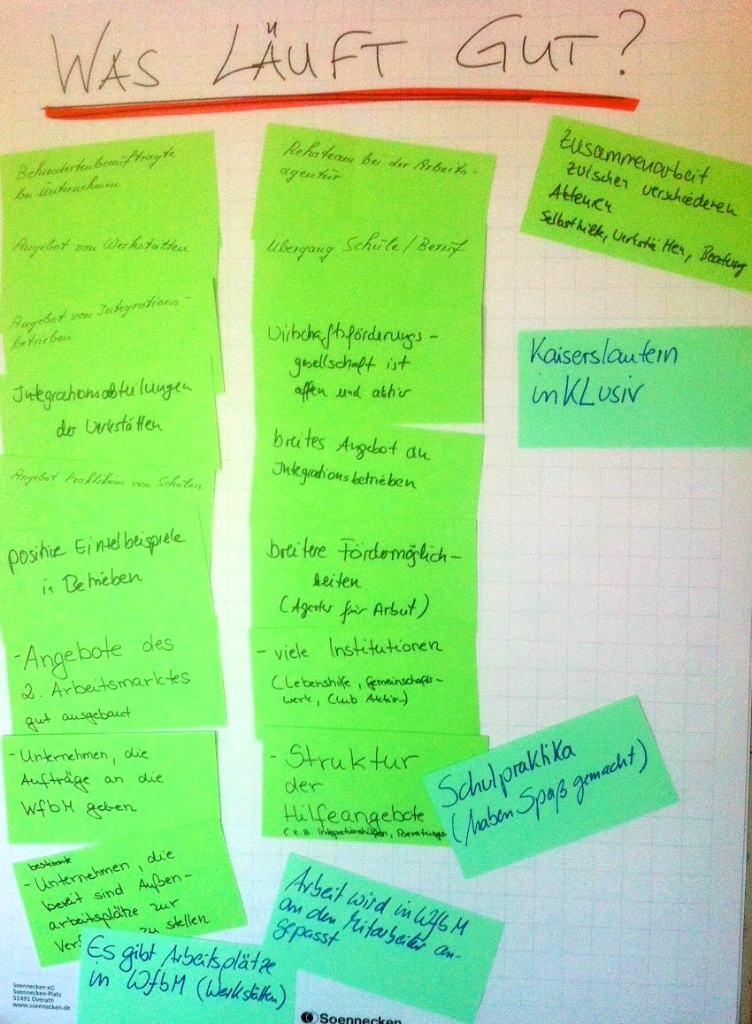 WAS LÄUFT GUT?
Behindertenbeauftragte
bei Unternehmen
Angebot von Werkstätten
Angebot von Integrations-
betrieben
Integrationsabteilungen
der Werkstätten
Angebot Praktikum von Schulen
positive Einzelbeispiele
in Betrieben
- Angebote des
2. Arbeitsmarktes
gut ausgebaut
- Unternehmen, die
Aufträge an die
WfbM geben
bestimmte
- Unternehmen, die
bereit sind Außen-
arbeitsplätze zur
zu stellen
Es gibt Arbeitsplätze
in WfbM (Werkstätten)
Rehateam bei der Arbeits-
agentur
Übergang Schule/Beruf
Wirtschaftsförderungs-
gesellschaft ist
offen und aktiv
breites Angebot an
Integrationsbetrieben
breitere Fördermöglich-
keiten
(Agentur für Arbeit)
- viele Institutionen
(Lebenshilfe, Gemeinschafts-
werk, Club Aktion)
- Struktur
der
Hilfeangebote
(z.B. Integrationshilfen, Beratungs
Arbeit wird in WfbM
an den Mitarbeiter an-
gepasst
Zusammenarbeit
zwischen verschiedenen
Akteuren
Selbsthilfe, Werkstätten, Beratung
Kaiserslautern
inKLusiv
Schulpraktika
(haben Spaß gemacht)
Soennecken eG
Soennecken-Platz
51491 Overath
www.soennecken.de
Soennecken